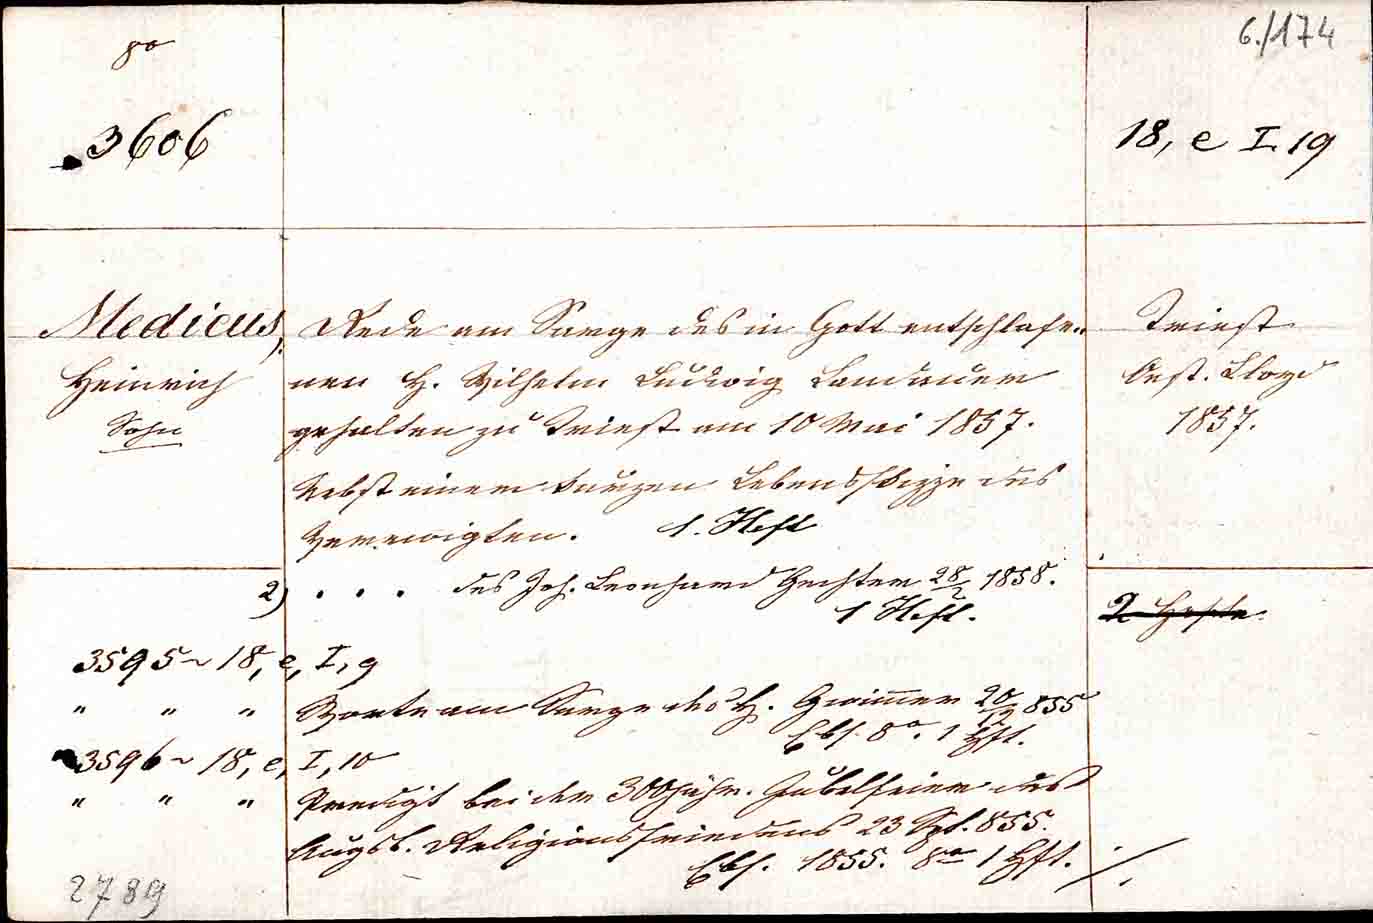 8o
6./174
3606
18, e I. 19
Medicus,
Heinrich
Sohn
Rede am Sarge des in Gott entschlafe-
nen H. Wilhelm Ludwig Landauer
gehalten zu Triest am 10 Mai 1857.
Nebst einer kurzen Lebensskizze des
Verewigten. 1. Heft
Triest
Oest. Lloyd
1857.
2) . . . des Joh. Leonhard Gechter 28/2 1858.
1 Heft.
2 Hefte.
3595 ~ 18, e, I, 9
" " " Worte am Sarge des H. 20/12 855
Ebf. 8o. 1 Hft.
3596 ~ 18, e, I, 10
" " " Predigt bei der 300jähr. Jubelfeier des
Augsb. Religionsfriedens 23 Spt. 855.
Ebf. 1855. 8o 1 Hft. ./.
2789